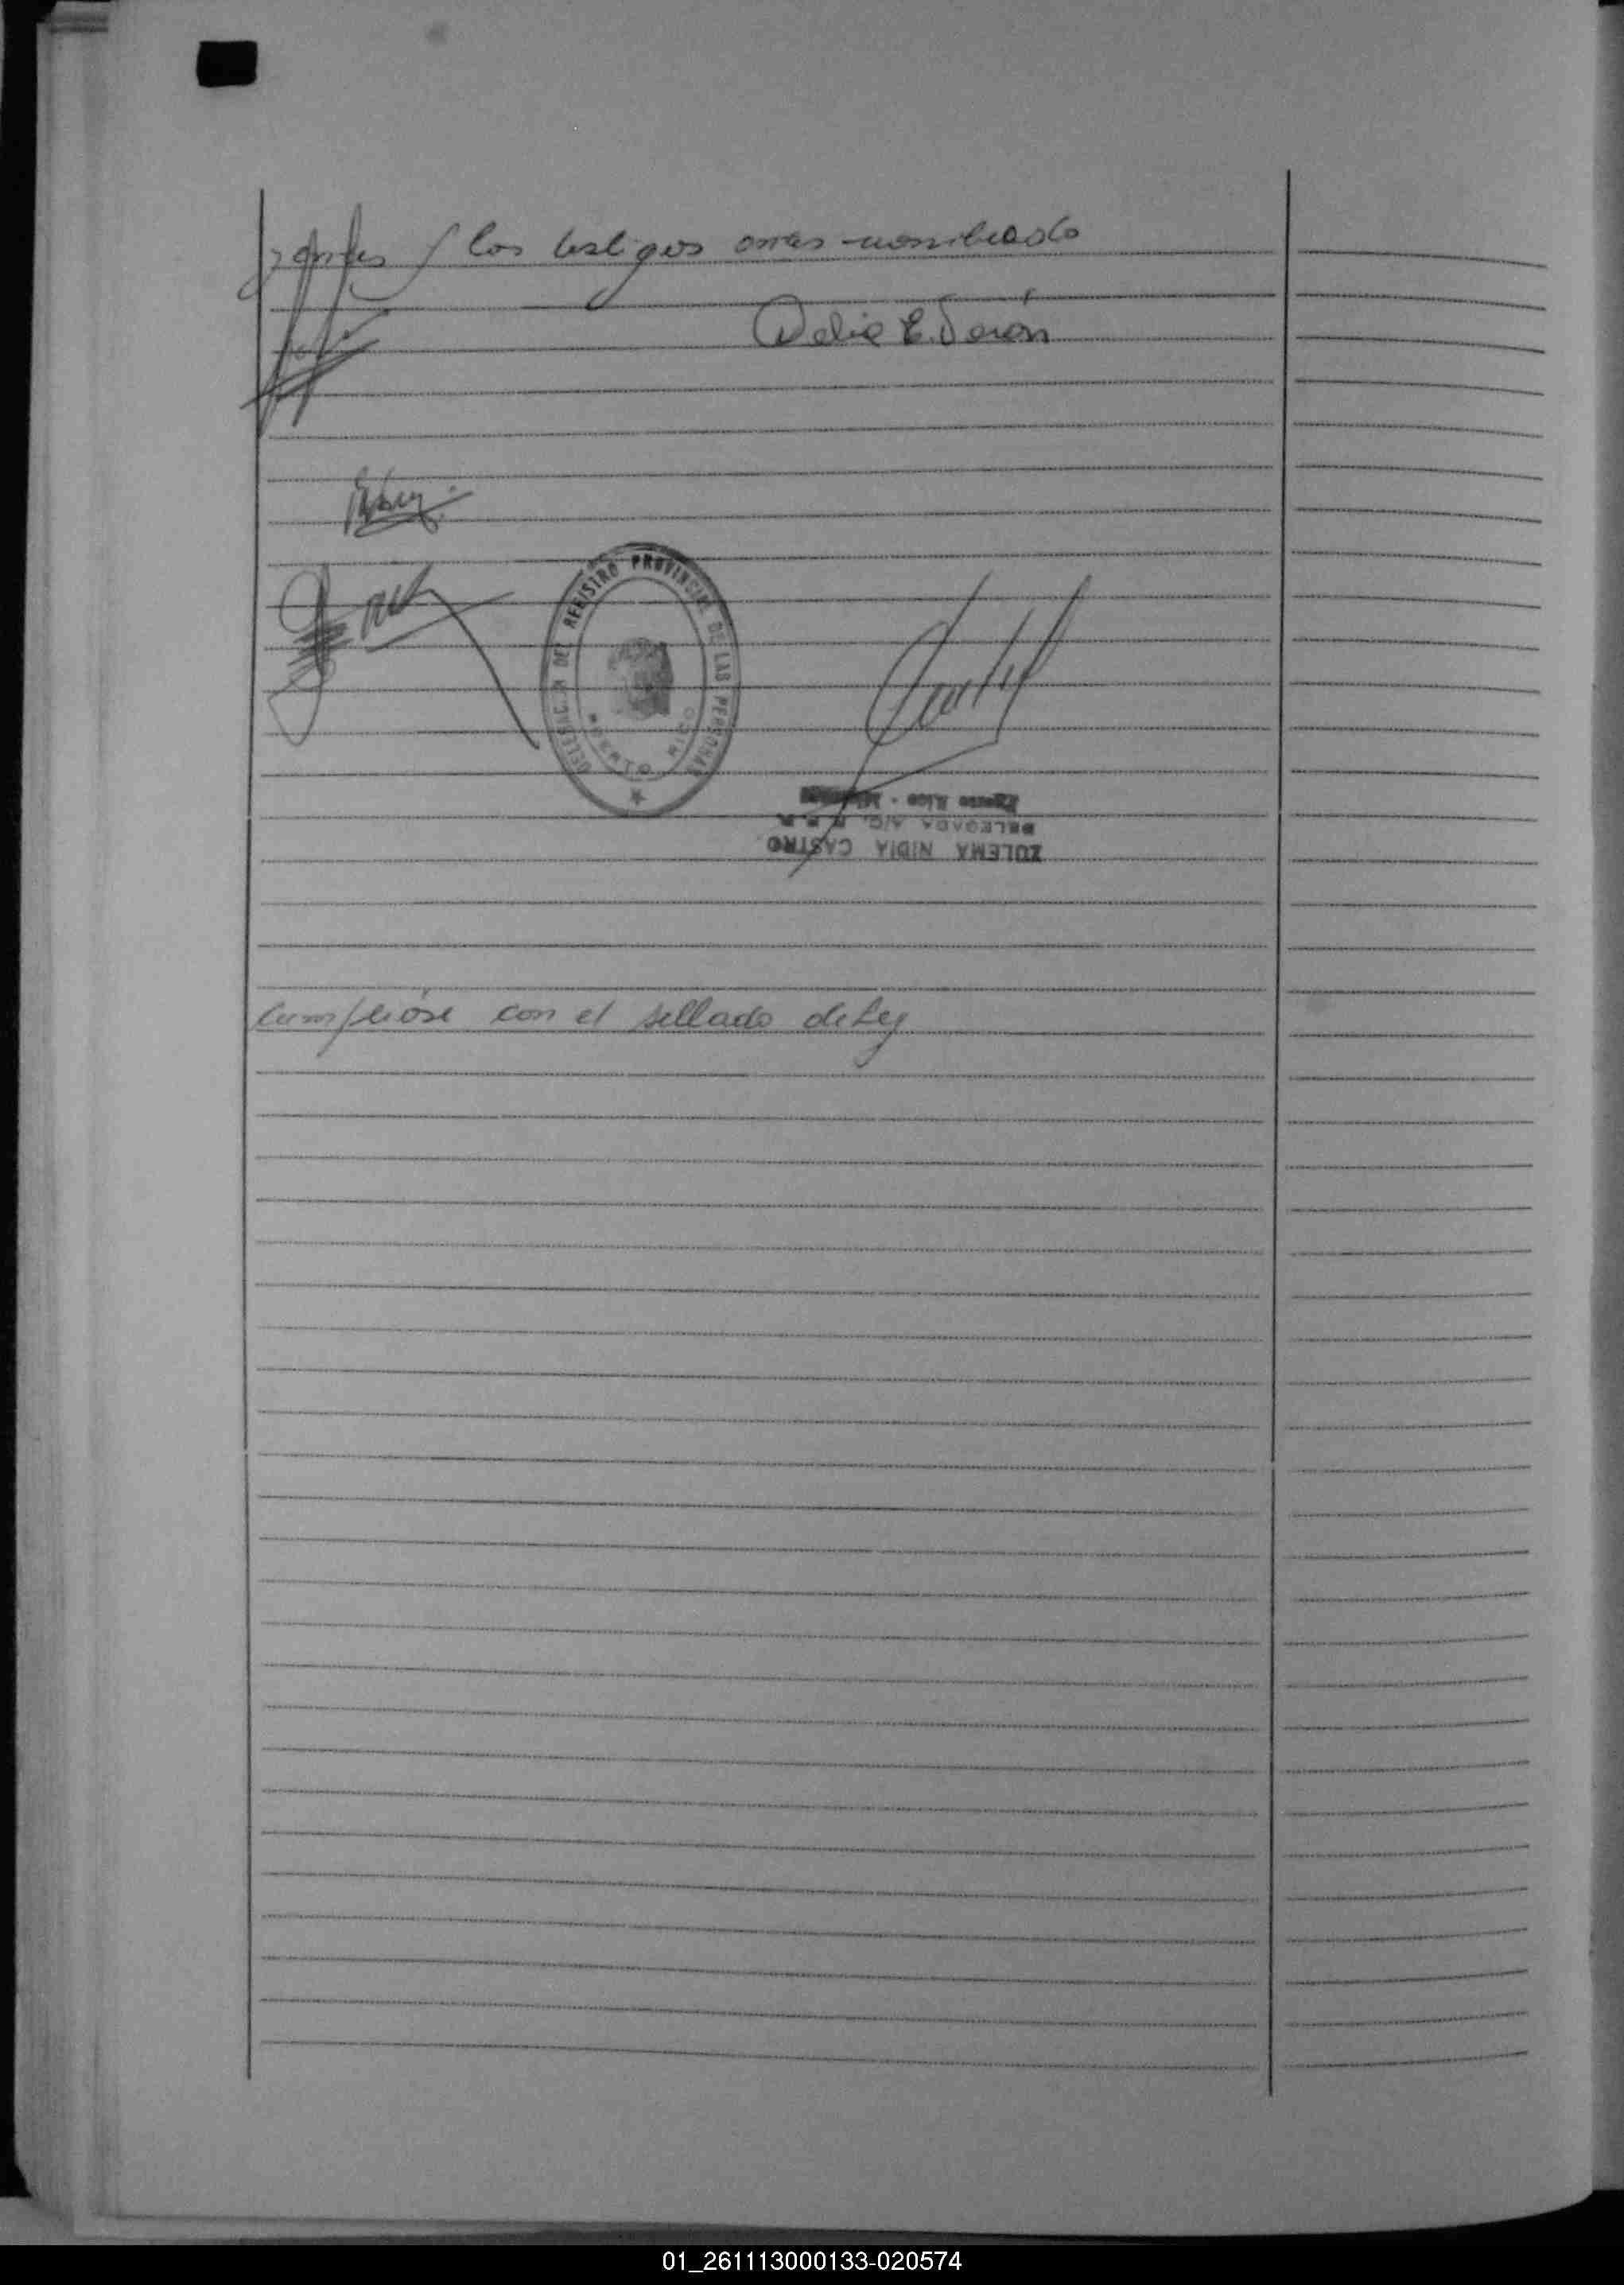 y los testigos antes nombrado
Delia E. Terán
DELEGACION DEL REGISTRO PROVINCIAL DE LAS PERSONAS
PUERTO RICO
Puerto Rico - Misiones
DELEGADA A/C. R. P. P.
ZULEMA NIDIA CASTRO
Cumplióse con el sellado de Ley
01_261113000133-020574